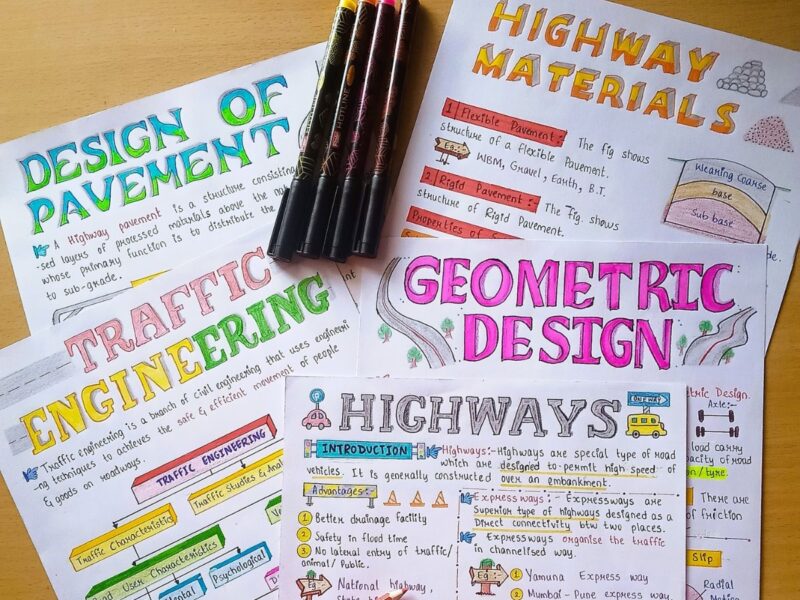 DESIGN OF
PAVEMENT
A Highway pavement is a structure consisting
-sed layers of processed materials above the
whose primary function is to distribute the
to sub-grade.
HIGHWAY
MATERIALS
1 Flexible Pavement:- The fig shows
structure of a flexible Pavement.
Eg:- WBM, Gravel, Earth, B.T.
2 Rigid Pavement:- The fig. shows
structure of Rigid Pavement.
Properties of
Wearing Coarse
base
Sub base
TRAFFIC
ENGINEERING
Traffic engineering is a branch of civil engineering that uses engineeri
-ng techniques to achieves the safe & efficient movement of people
& goods on roadways.
TRAFFIC ENGINEERING
Traffic Studies & Anal
Traffic Characteristics
Road User Characteristics
Psychological
GEOMETRIC
DESIGN
metric Design.
Axle:-
load carry
pacity of road
/tyre.
There are
of friction
Slip
Radial
HIGHWAYS
INTRODUCTION Highways:- Highways are special type of road
which are designed to permit high speed of
vehicles. It is generally constructed over an embankment.
Advantages:-
1 Better drainage facility
2 Safety in flood time
3 No lateral entry of traffic/
animal/public.
Eg:- National highway,
Expressways:- Expressways are
Superior type of highways designed as a
Direct connectivity btw two places.
Expressways organise the traffic
in channelised way.
Eg:- 1 Yamuna Express way
2 Mumbai-Pune express way.